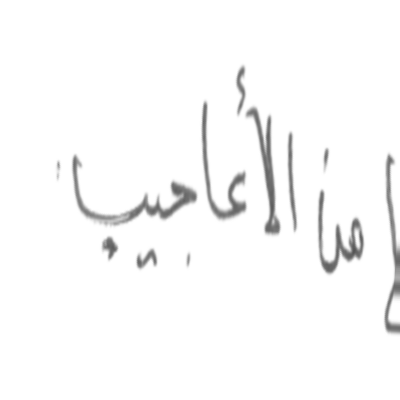 من الأعاجيب